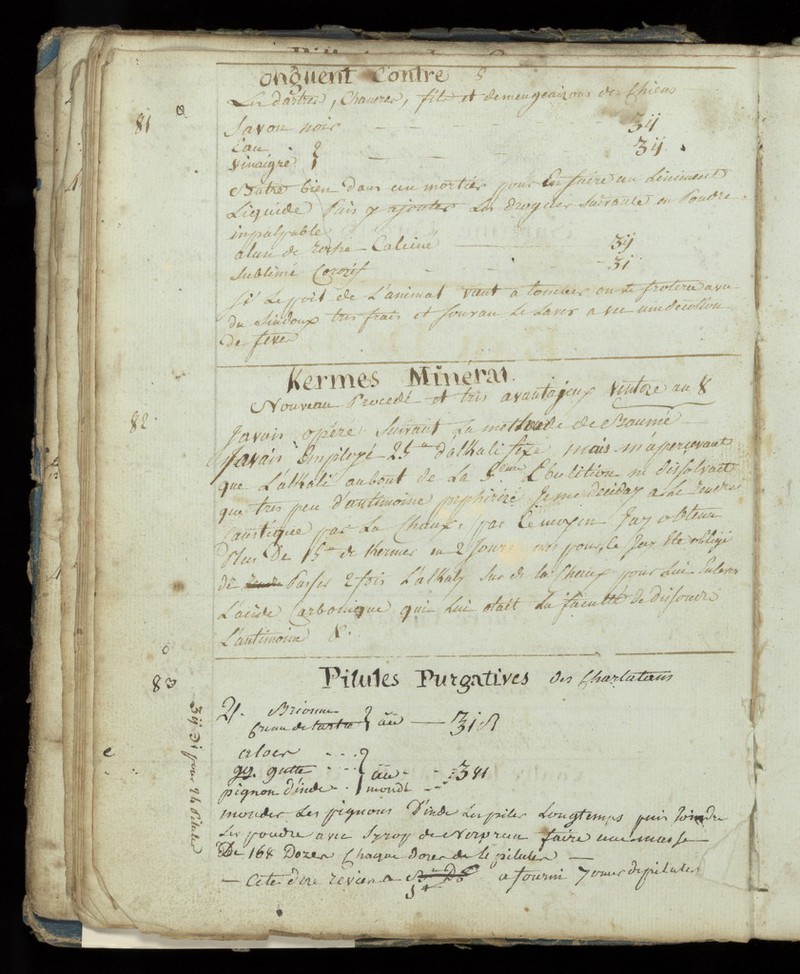 onguent Contre
Les dartres, Chancres, et demengeaisons des Chiens
81
Savon noir ʒij
Eau
Vinaigre ʒij
Batre bien dans un mortier pour En faire un Liniment
Liquide Puis y ajouter Les drogues Suivante en Poudre
inpalpable
alun de roche Calciné ʒij
Sublimé Corozif ʒi
Si Le poil de L'animal vient a tomber on le frotera avec
du Sindoux tres frais et Le Laver avec une decoction
de feve
Kermes Minéral
Nouveau Procedé et tres avantajeux
82
Javais opéré Suivant La methode de Baumé
Javais Employé d'alkali fixe, mais m'aperçevant
que L'alkali au bout de La Ebulition ne dissolvait
que tres peu d'antimoine Je me deciday a Le rendre
Caustique par La Chaux, par Ce moyen Jay obtenu
Plus De de Kermes en 2 Jours pour Le Jay Ete obligé
de Passer 2 fois L'alkaly Sur de la Chaux pour Lui Enlever
L'acide Carbonique qui Lui otait La faculté de dissoudre
L'antimoine
83
Pilules Purgatives des Charlatans
Brionne
Creme de tartre āā
aloes
gutte āā
pignon d'inde mondé
monder Les pignons D'inde Les piler Longtemps puis Joindre
Les poudre avec Syrop de Nerprun faire une masse
De 168 Dozes Chaque doze de pilules
Cete doze revien a a fourni 7 onces de pilules
pour 24 Pilules